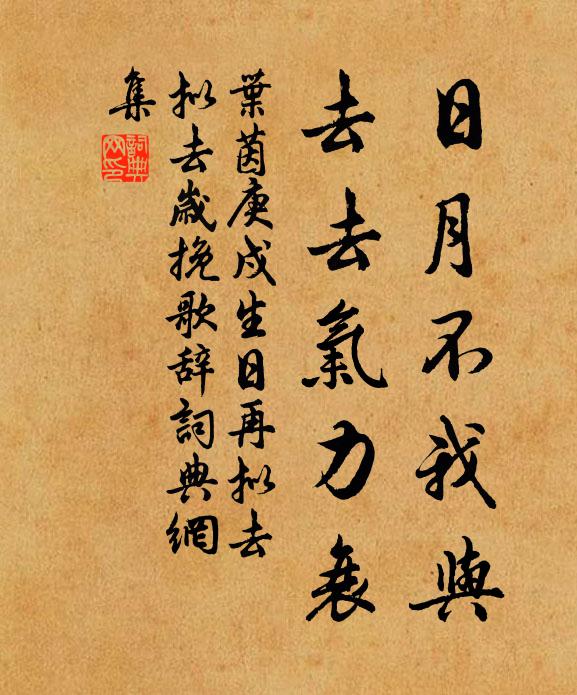 日月不我與
去去氣力衰
葉茵庚戌生日再拟去
拟去歲挽歌辞詞典網
集
詞典
网印